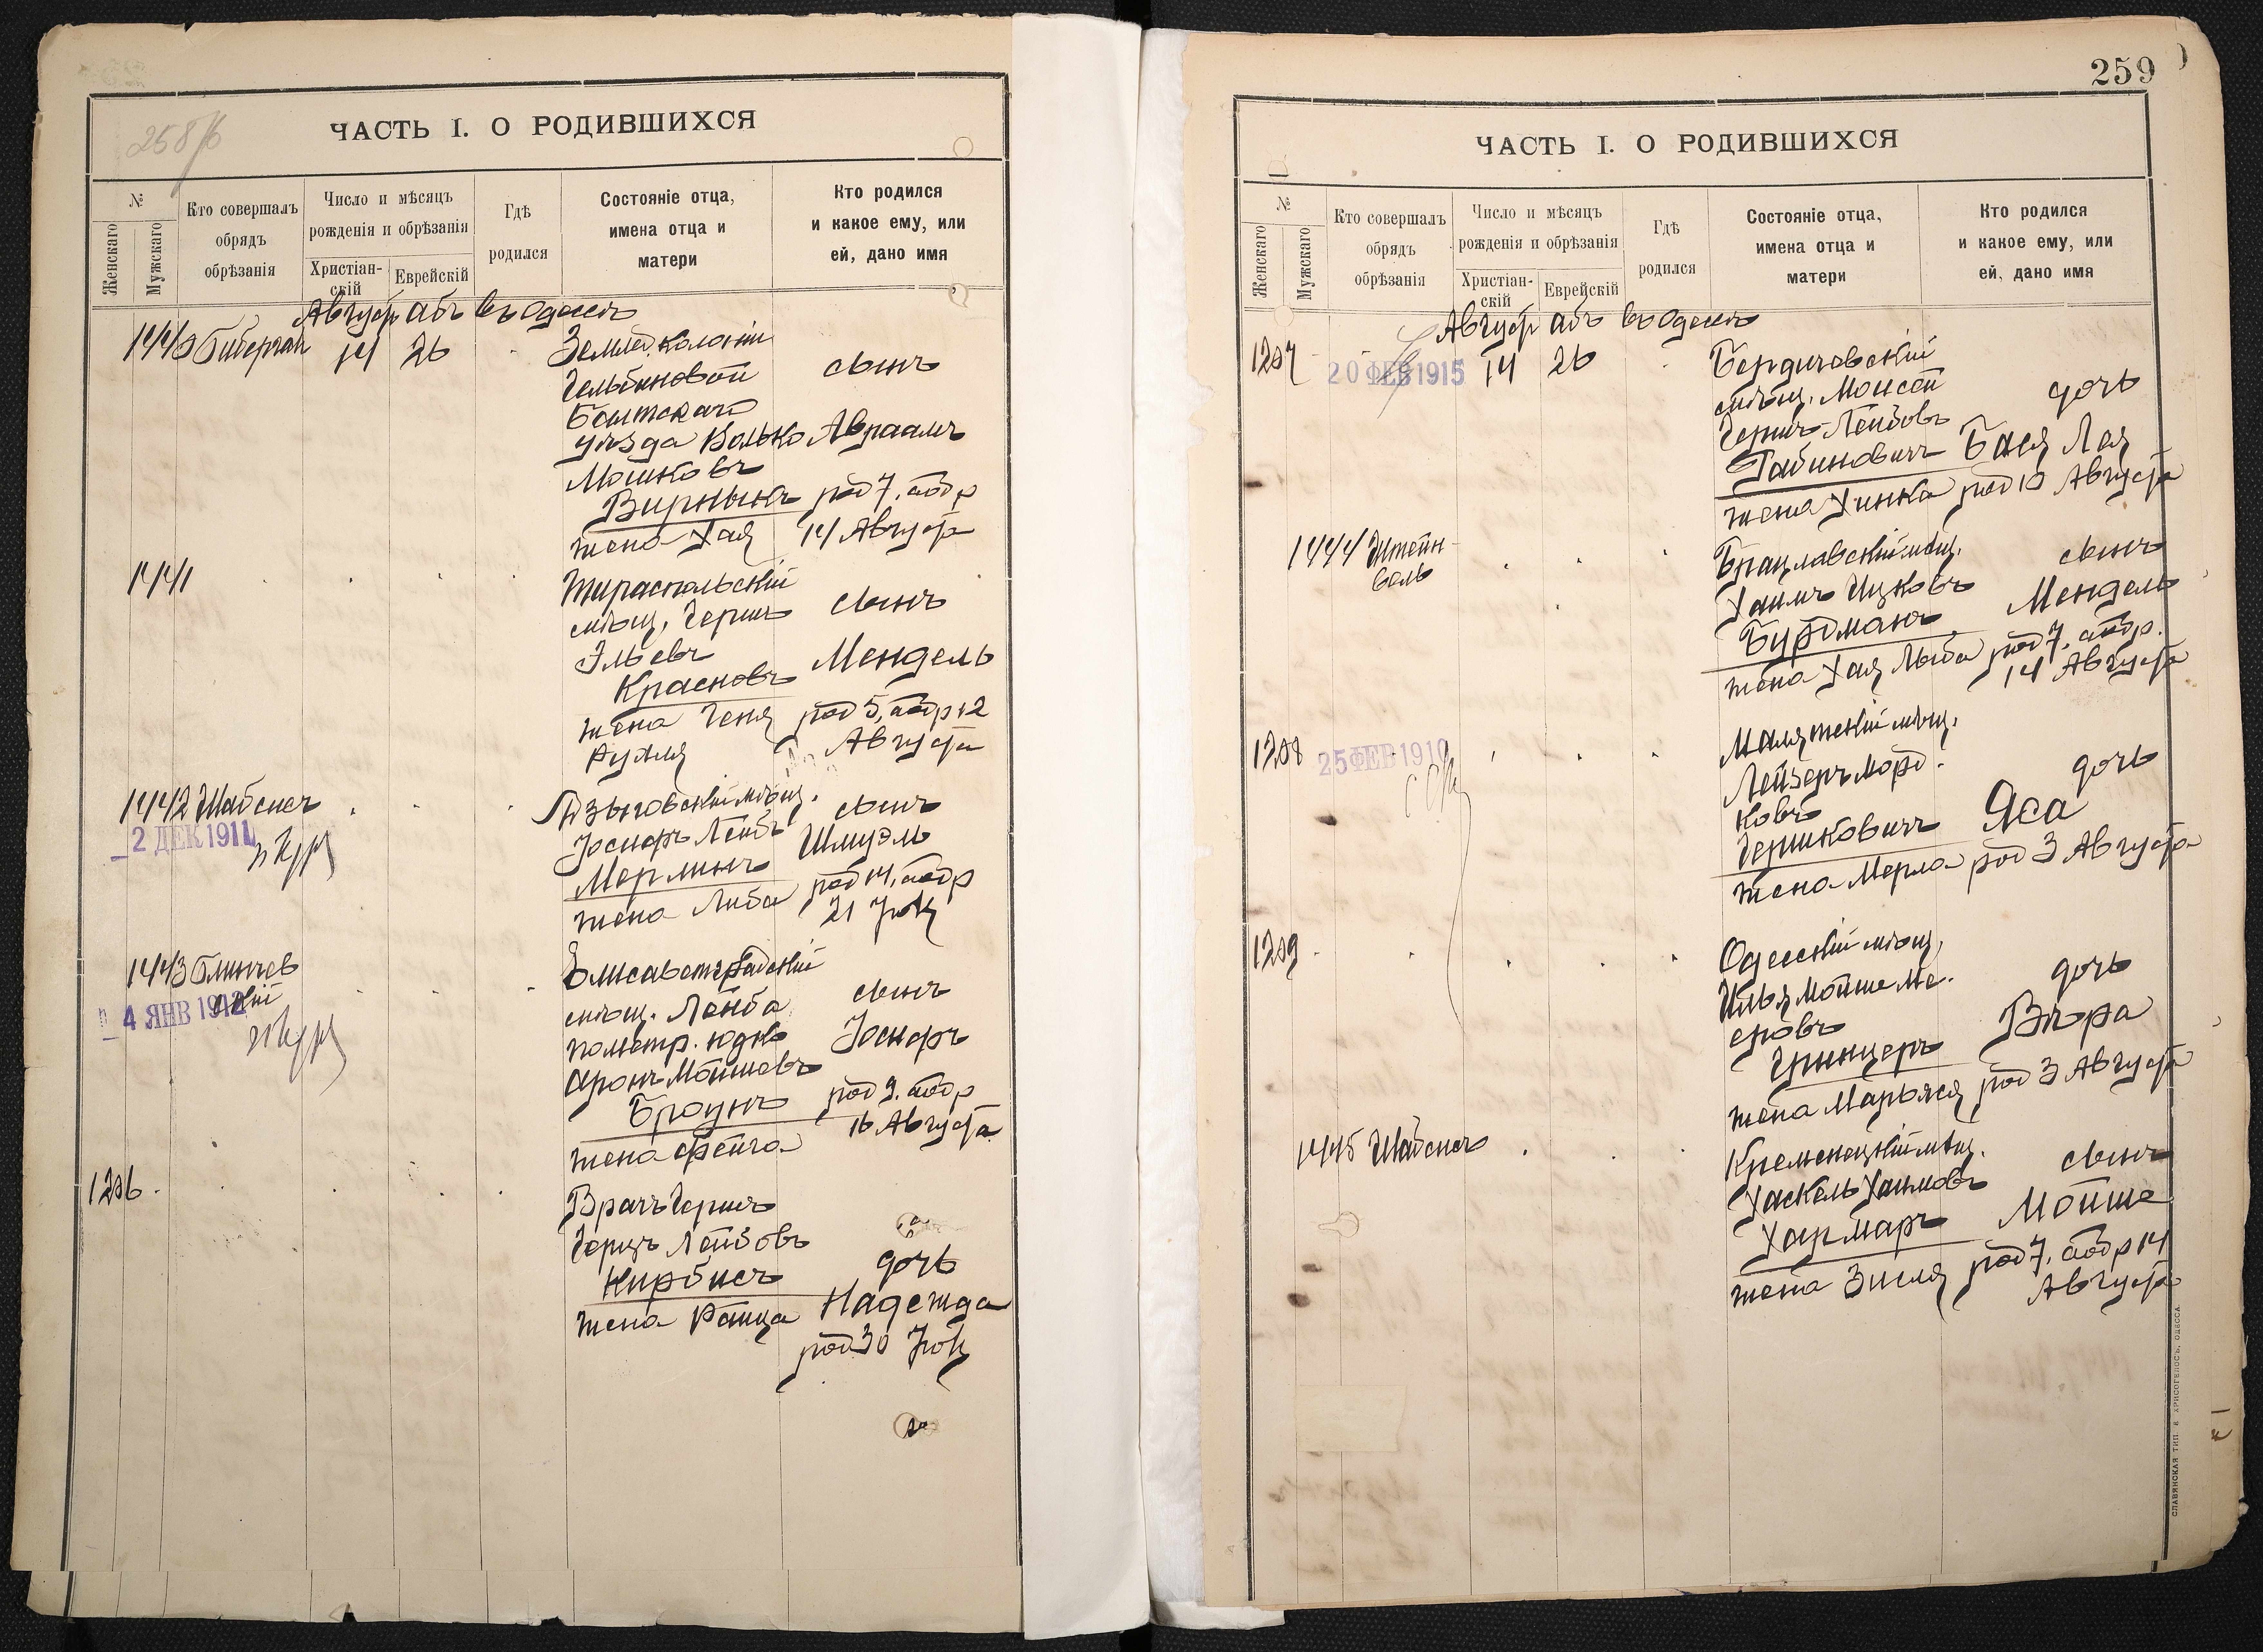 258/б
ЧАСТЬ I. О РОДИВШИХСЯ
№
Женскаго
Мужскаго
Кто совершалъ
обрядъ
обрѣзанія
Число и мѣсяцъ
рожденія и обрѣзанія
Христіан-
скій
Еврейскій
Гдѣ
родился
Состояніе отца,
имена отца и
матери
Кто родился
и какое ему, или
ей, дано имя
Август абъ въ Одессѣ
1440 14 26
Землед. колоніи
сынъ
Балтскаго
уѣзда Волько Авраамъ
Мошковъ
жена Хая
род 7, обр
14 Августа
1441
Тираспольскій
мѣщ. Гершъ сынъ
Эльевъ
Красновъ Мендель
жена Геня род 5, обр 12
Рухля Августа
1442 Шабсисъ
2 ДЕК 1911
мѣщ. сынъ
Іосифъ Лейбъ Шмуэль
Мерлинъ
жена Либа род 14, обр
21 Іюля
1443 Блинчев
скій
4 ЯНВ 1912
Елисаветградскій
мѣщ. Лейба сынъ
пометр. Юдко Іосифъ
Аронъ Мойшевъ
Броунъ род 9, обр
жена Фейга 16 Августа
1206
Врачъ Гершъ
Герцъ Лейбовъ
Кирбисъ дочь
жена Раица Надежда
род 30 Іюля
259
ЧАСТЬ I. О РОДИВШИХСЯ
№
Женскаго
Мужскаго
Кто совершалъ
обрядъ
обрѣзанія
Число и мѣсяцъ
рожденія и обрѣзанія
Христіан-
скій
Еврейскій
Гдѣ
родился
Состояніе отца,
имена отца и
матери
Кто родился
и какое ему, или
ей, дано имя
Август абъ въ Одессѣ
1207 20 ФЕВ 1915 14 26
Бердичевскій
мѣщ. Моисей дочь
Гершъ-Лейбовъ
Рабиновичъ Бася Лея
жена Хинка род 10 Августа
1444 Штейн-
Брацлавскій мѣщ. сынъ
Хаимъ Ицковъ Мендель
Бурдманъ род 7, обр.
жена Хая Либа 14 Августа
1208 25 ФЕВ 1910
мѣщ.
Лейзеръ Морд-
ковъ дочь
Гершковичъ Яса
жена Мерла род 3 Августа
1209
Одесскій мѣщ.
Илья Мойше Ме-
еровъ дочь
Гринцеръ Вѣра
жена Марьяся род 3 Августа
1445 Шабсисъ
Кременецкій мѣщ. сынъ
Хаскель Хаимовъ
Хармаръ Мойше
жена Зисля род 7, обр 14
Августа
СЛАВЯНСКАЯ ТИП. Е. ХРИСОГЕЛОСЪ, ОДЕССА.